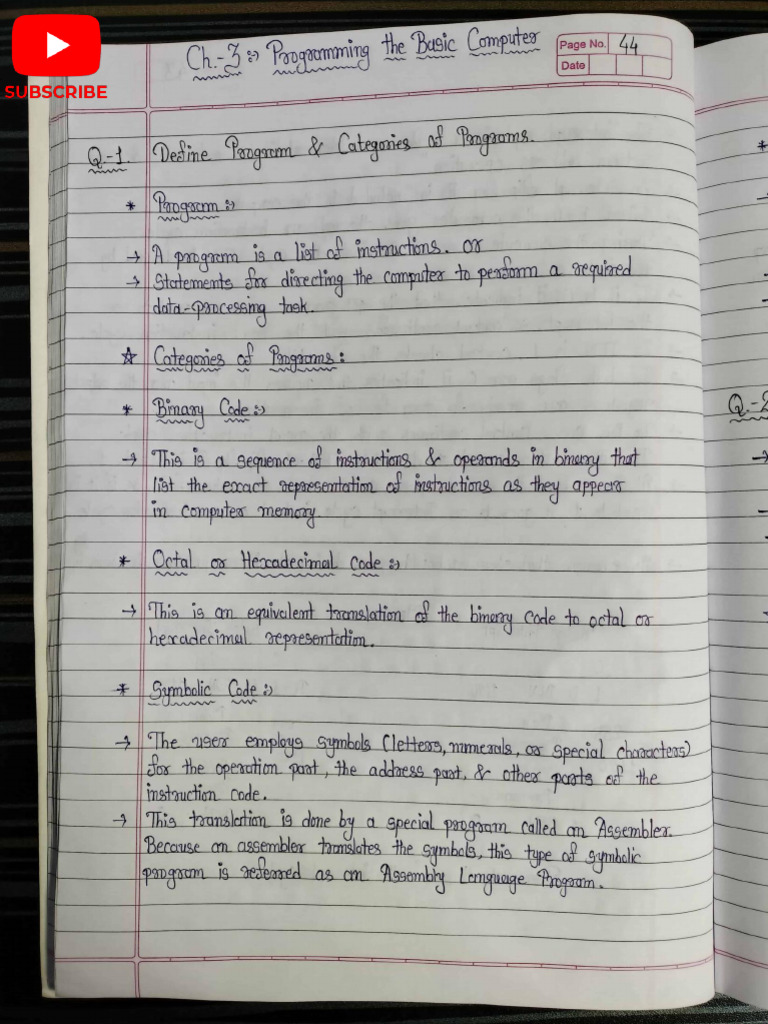 SUBSCRIBE
Ch.-3:> Programming the Basic Computer
Page No. 44
Date
Q.-1. Define Program & Categories of Programs.
* Program:>
→ A program is a list of instructions. or
→ Statements for directing the computer to perform a required
data-processing task.
☆ Categories of Programs:
* Binary Code:>
→ This is a sequence of instructions & operands in binary that
list the exact representation of instructions as they appear
in computer memory.
* Octal or Hexadecimal Code:>
→ This is an equivalent translation of the binary code to octal or
hexadecimal representation.
* Symbolic Code:>
→ The user employs symbols (letters, numerals, or special characters)
for the operation part, the address part, & other parts of the
instruction code.
→ This translation is done by a special program called an Assembler.
Because an assembler translates the symbols, this type of symbolic
program is referred as an Assembly Language Program.
*
Q.-2
→